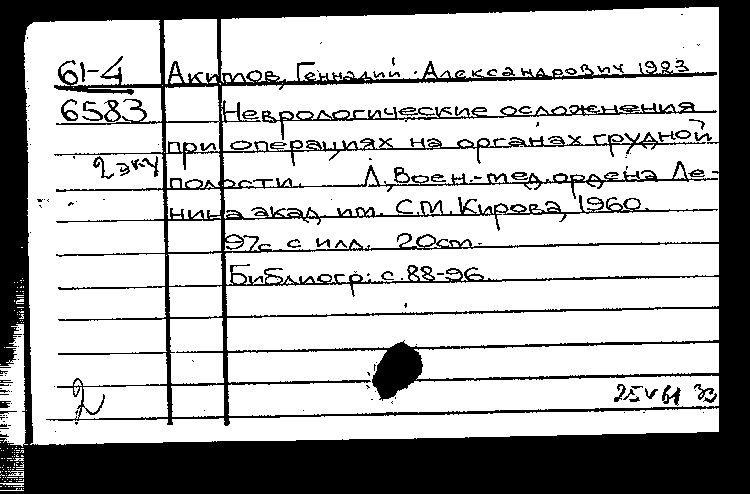 61-4 Акимов, Геннадий Александрович 1923
6583 Неврологические осложнения
при операциях на органах грудной
2 экз
полости. Л., Воен.-мед. ордена Ле-
нина акад. им. С.М. Кирова, 1960.
97с. с илл. 20см.
Библиогр.: с. 88-96.
2
25 V 61